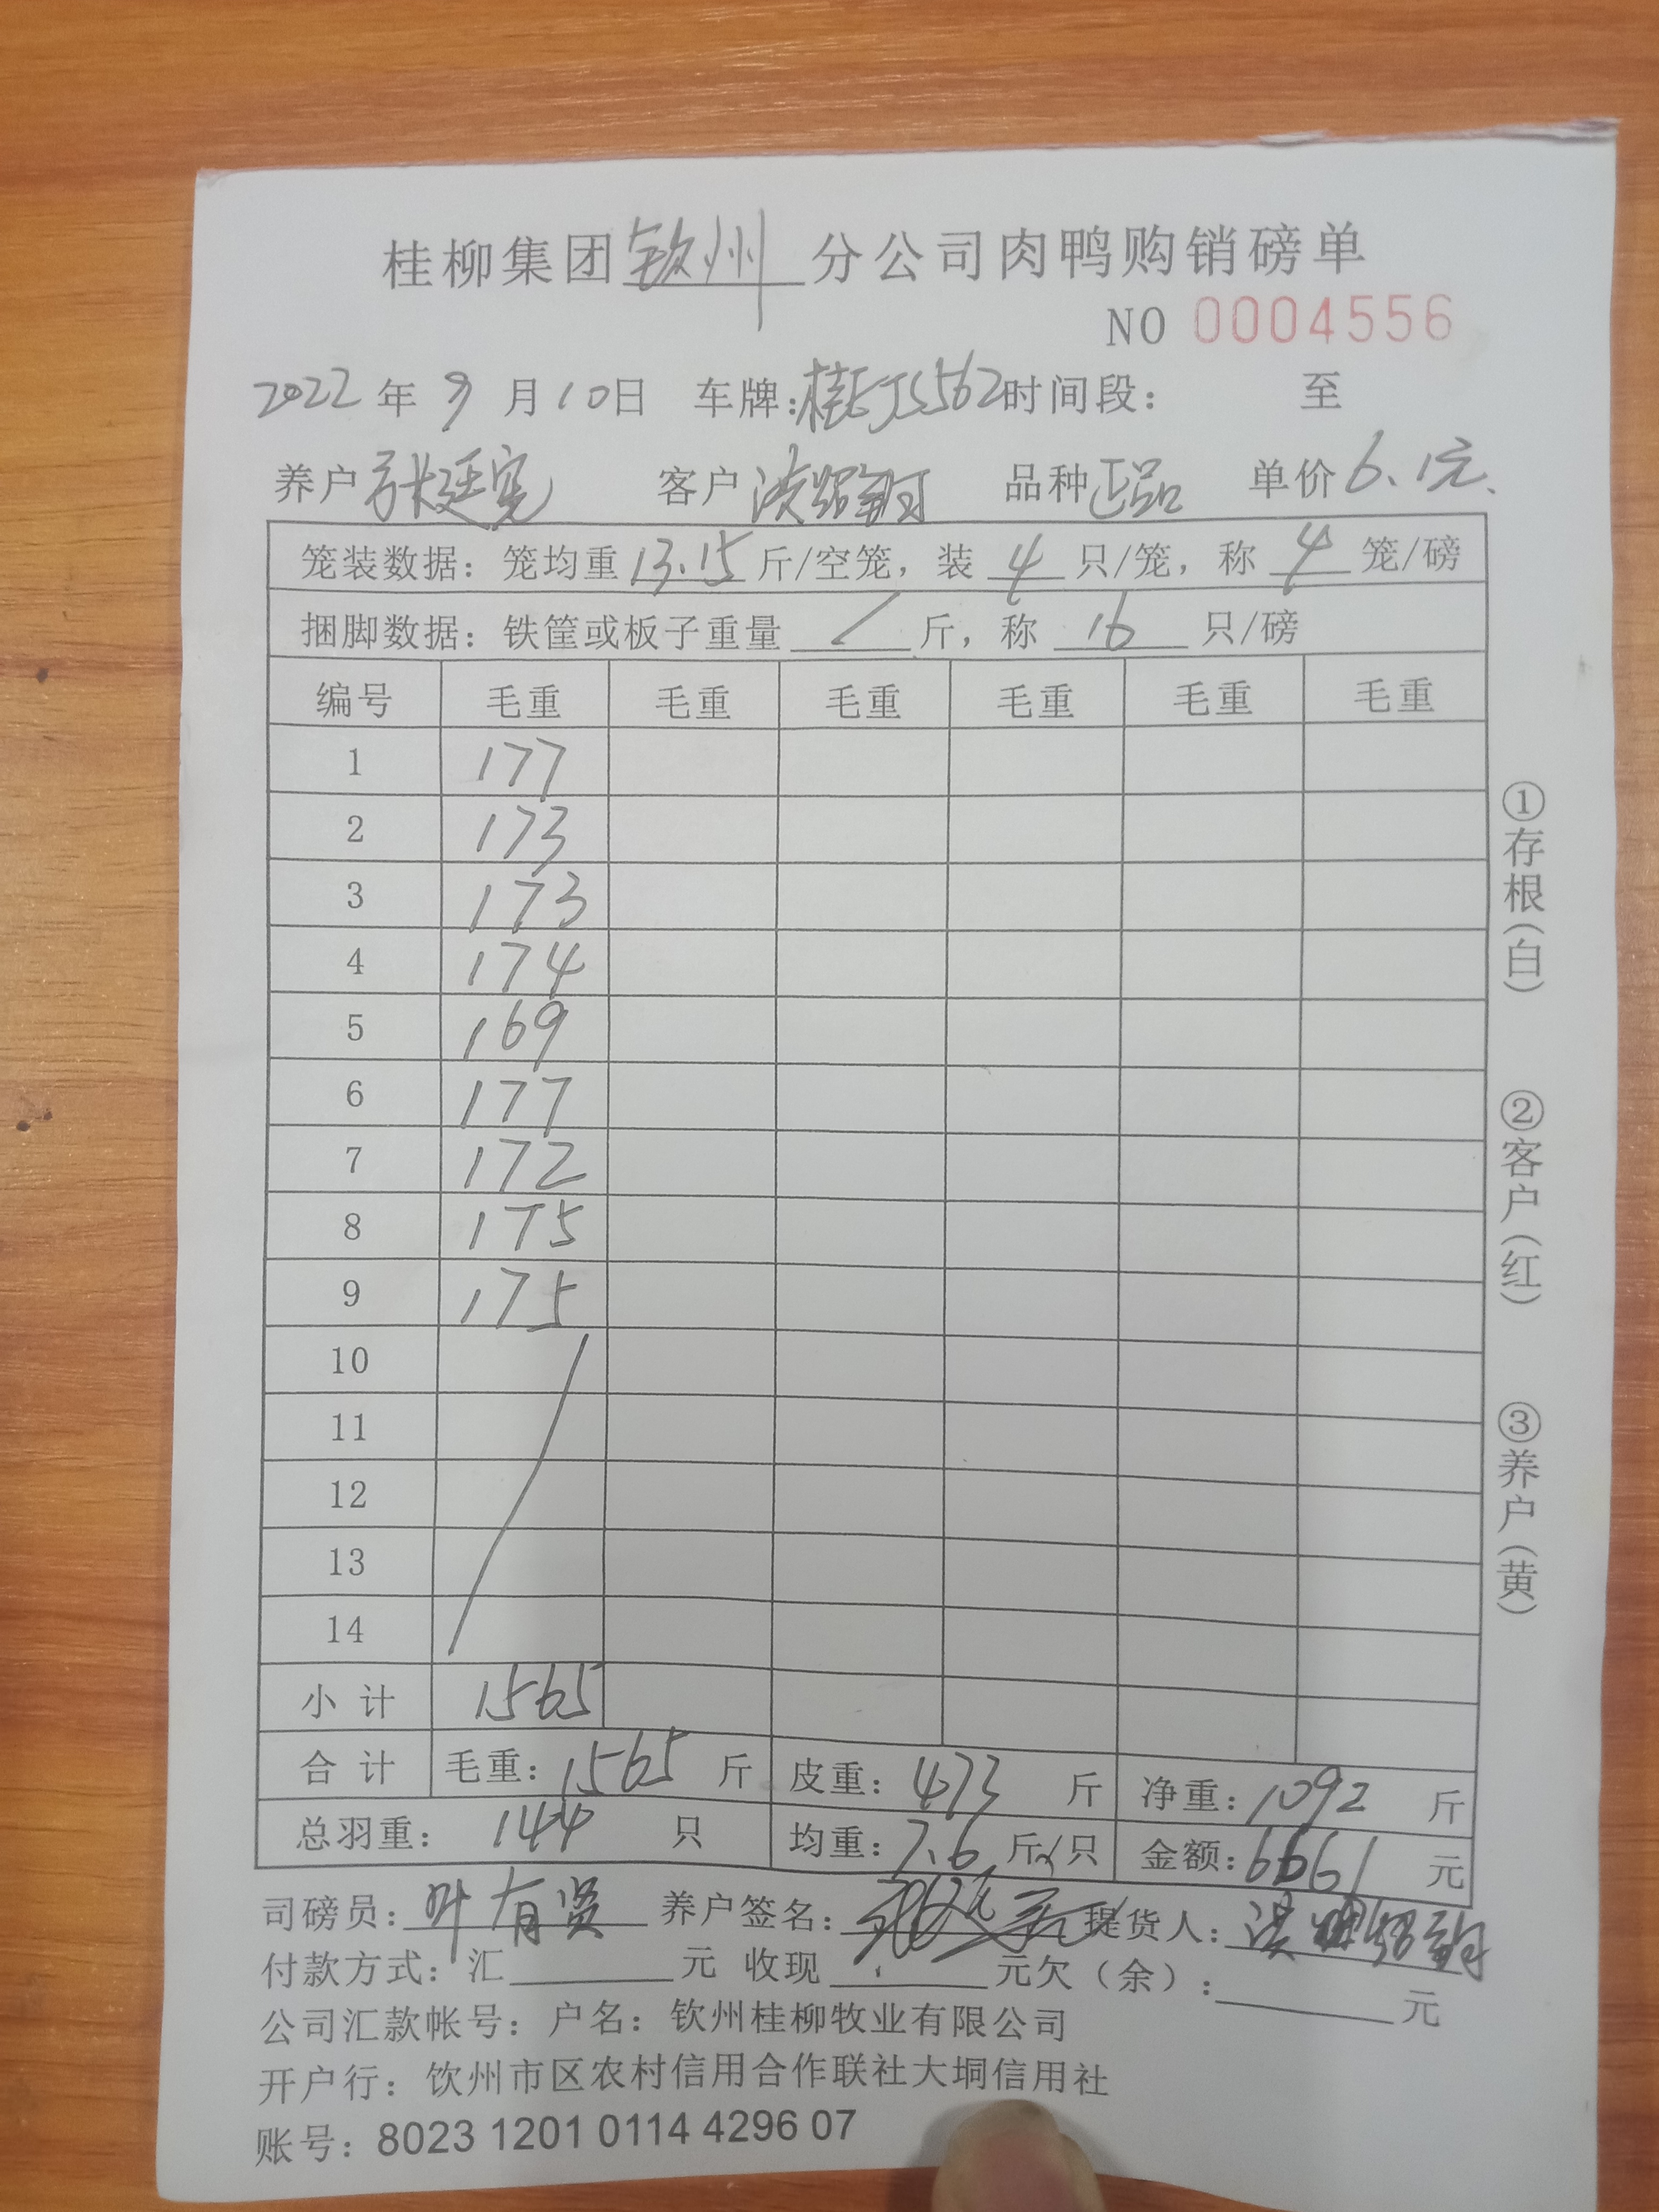 桂柳集团钦州分公司肉鸭购销磅单
NO 0004556
2022年9月10日 车牌:桂EJS562时间段: 至
养户张廷宽 客户 品种正品 单价6.1元
笼装数据:笼均重13.15斤/空笼,装4只/笼,称4笼/磅
捆脚数据:铁筐或板子重量/斤,称16只/磅
编号 毛重 毛重 毛重 毛重 毛重 毛重
1 177
2 173
3 173
4 174
5 169
6 177
7 172
8 175
9 175
10
11
12
13
14
小计 1565
合计 毛重:1565斤 皮重:473斤 净重:1092斤
总羽重:144只 均重:7.6斤/只 金额:6661元
司磅员:叶有贤 养户签名: 提货人:
付款方式:汇 元 收现 元欠(余): 元
公司汇款帐号:户名:钦州桂柳牧业有限公司
开户行:钦州市区农村信用合作联社大垌信用社
账号:8023 1201 0114 4296 07
①存根(白)
②客户(红)
③养户(黄)